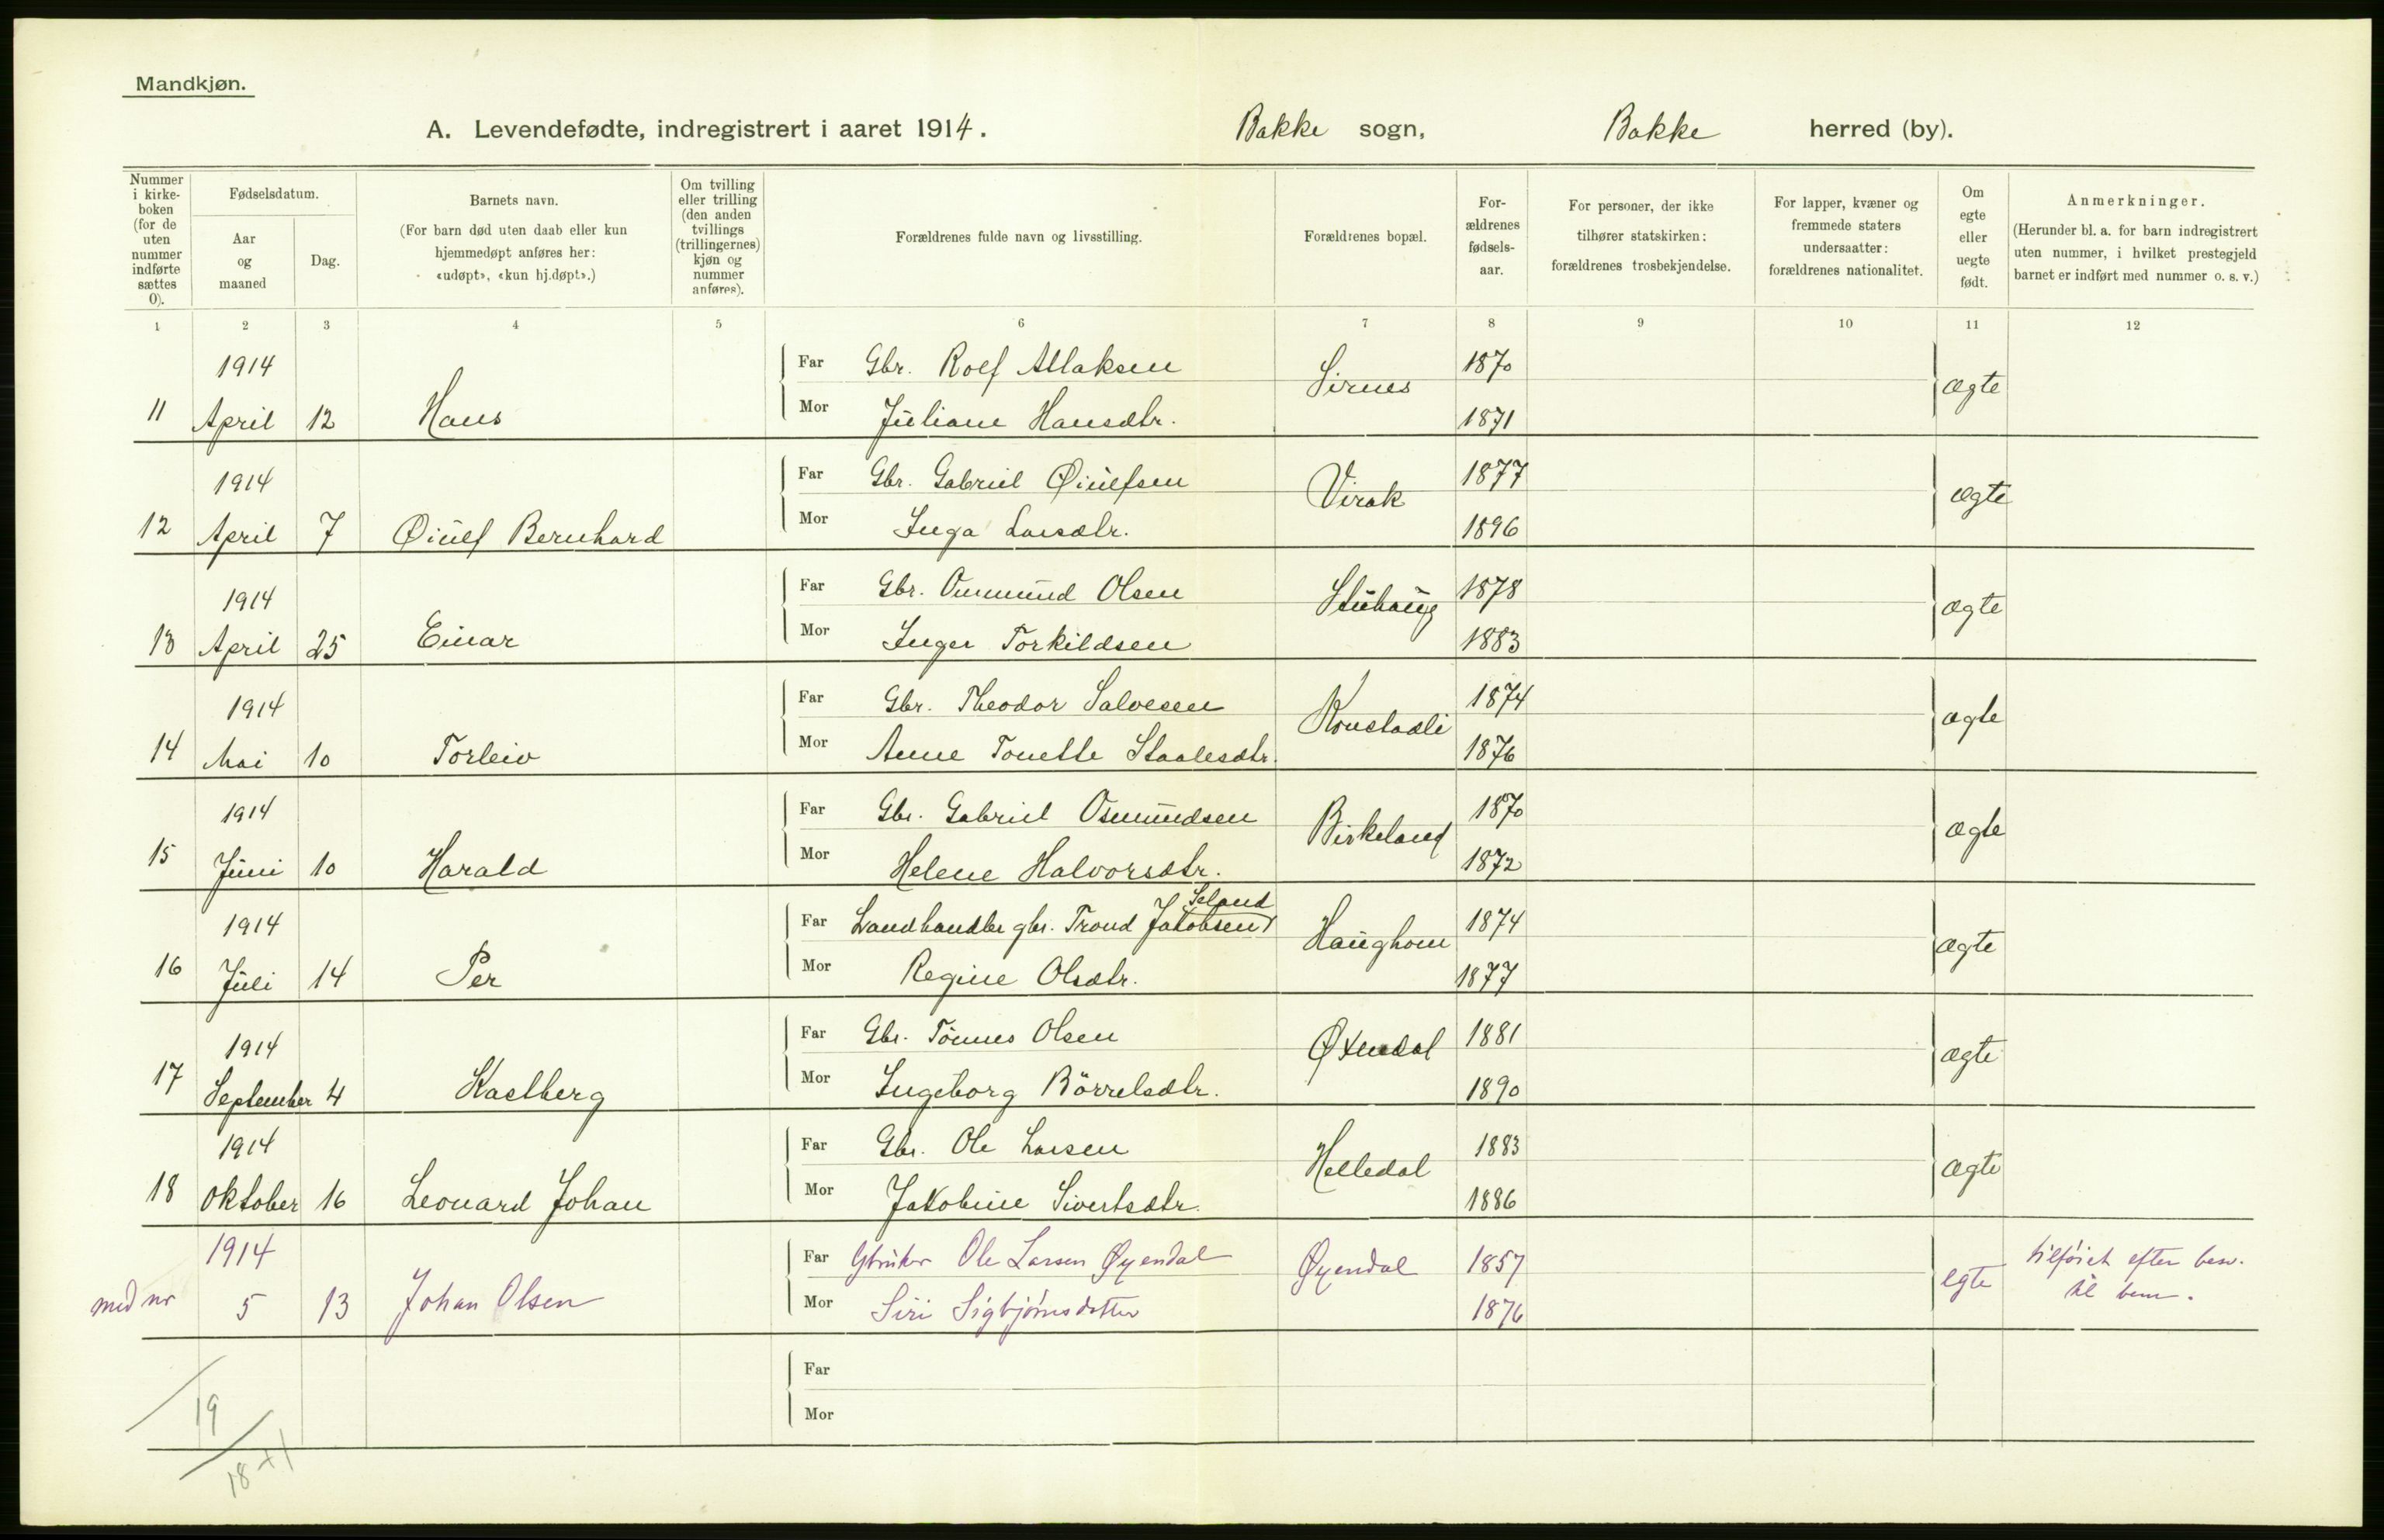 Mandkjøn.
A. Levendefødte, indregistrert i aaret 1914. Bakke sogn, Bakke herred (by).
Nummer i kirke-boken (for de uten nummer indførte sættes 0).
Fødselsdatum.
Aar og maaned
Dag.
Barnets navn.
(For barn død uten daab eller kun hjemmedøpt anføres her: «udøpt», «kun hj.døpt».)
Om tvilling eller trilling (den anden tvillings (trillingernes) kjøn og nummer anføres).
Forældrenes fulde navn og livsstilling.
Forældrenes bopæl.
For-ældrenes fødsels-aar.
For personer, der ikke tilhører statskirken: forældrenes trosbekjendelse.
For lapper, kvæner og fremmede staters undersaatter: forældrenes nationalitet.
Om egte eller uegte født.
Anmerkninger.
(Herunder bl. a. for barn indregistrert uten nummer, i hvilket prestegjeld barnet er indført med nummer o. s. v.)
1 2 3 4 5 6 7 8 9 10 11 12
1914 Far Gbr. Rolf Atlaksen Sirnes 1870 ægte
11 April 12 Hans Mor Juliane Hansdtr. 1871
1914 Far Gbr. Gabriel Øiulfsen Virak 1877 ægte
12 April 7 Øiulf Bernhard Mor Inga Larsdtr. 1896
1914 Far Gbr. Osmund Olsen 1878 ægte
13 April 25 Einar Mor Inger Torkildsen 1883
1914 Far Gbr. Theodor Salvesen Konstadli 1874 ægte
14 Mai 10 Torleiv Mor Anne Tonette Staalesdtr. 1876
1914 Far Gbr. Gabriel Osmundsen Birkeland 1870 ægte
15 Juni 10 Harald Mor Helene Halvorsdtr. 1872
1914 Far Landhandler gbr. Trond Jakobsen Seland Haughom 1874 ægte
16 Juli 14 Per Mor Regine Olsdtr. 1877
1914 Far Gbr. Tönnes Olsen Øxendal 1881 ægte
17 September 4 Kastberg Mor Ingeborg Börrelsdtr. 1890
1914 Far Gbr. Ole Larsen Helledal 1883 ægte
18 Oktober 16 Leonard Johan Mor Jakobine Sivertsdtr. 1886
1914 Far Gbruker Ole Larsen Øyendal Øyendal 1857 egte tilföiet efter besv.
med nr 5 13 Johan Olsen Mor Siri Sigbjörnsdotter 1876 til bem.
Far
19 Mor
18+1